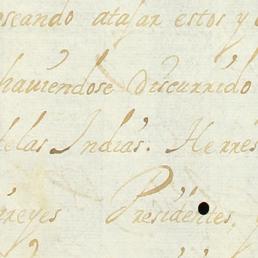 oseando atajar estos y
haviendose Discurrido
telas Indias. Herres
rreyes Presidentes,